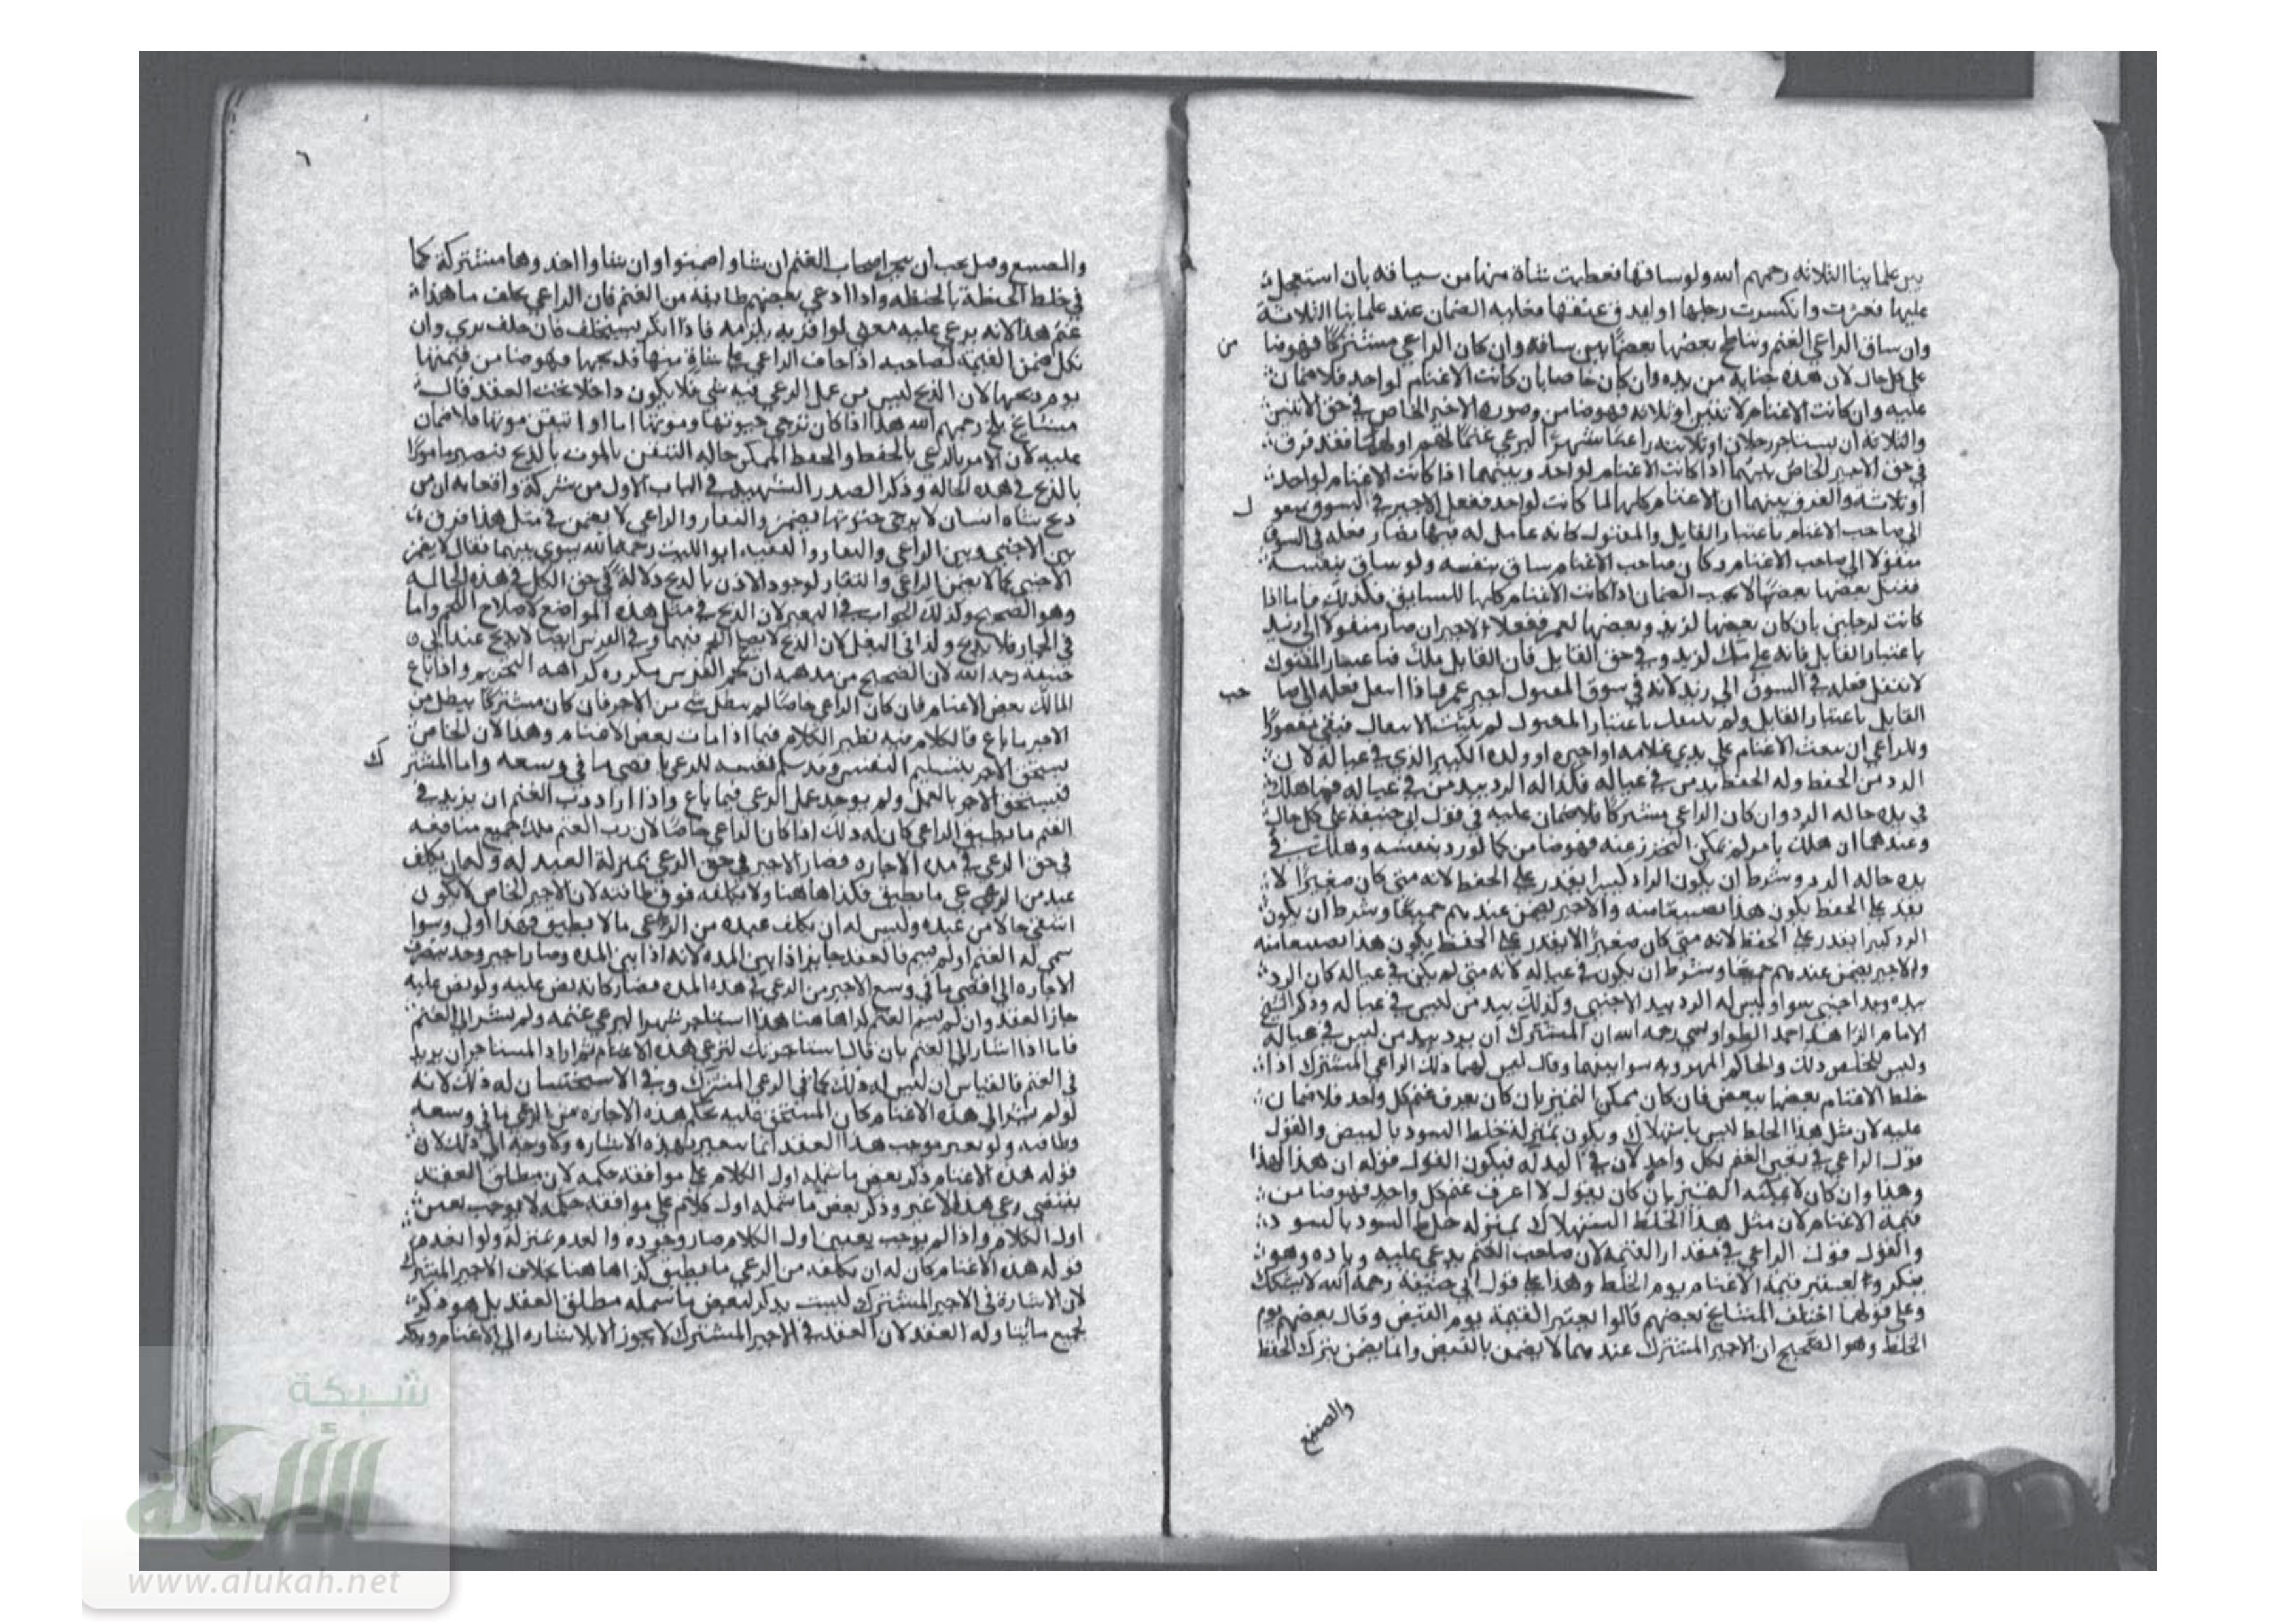 بين علمائنا الثلاثة رحمهم الله ولو ساقها فعطبت شاة منها من سياقه بان استعجل
عليها فعثرت وانكسرت رجلها او اندق عنقها فعليه الضمان عند علمائنا الثلاثة
وان ساق الراعي الغنم وتناطح بعضها بعضا من سياقه وان كان الراعي مشتركا فهو ضا
من
على كل حال لان هذه جناية من يده وان كان خاصا بان كانت الاغنام لواحد فلا ضمان
عليه وان كانت الاغنام لاثنين او ثلاثة فهو ضامن وصورة الاجير الخاص في حق الاثنين
والثلاثة ان يستاجر رجلان او ثلاثة راعيا شهرا ليرعي غنما لهم او لهما فقد فرق
في حق الاجير الخاص بينهما اذا كانت الاغنام لواحد وبينهما اذا كانت الاغنام لواحد
او ثلاثة والفرق بينهما ان الاغنام كلها لما كانت لواحد ففعل الاجير في السوق منقو
ل
الى صاحب الاغنام باعتبار القاتل والمقتول كانه عامل له فيها فصار فعله في السوق
منقولا الى صاحب الاغنام وكان صاحب الاغنام ساق بنفسه ولو ساق بنفسه
فقتل بعضها بعضا لا يجب الضمان اذا كانت الاغنام كلها للسايق فكذلك فاما اذا
كانت لرجلين بان كان بعضها لزيد وبعضها لعمر ففعل الاجير ان صار منقولا الى زيد
باعتبار القاتل فانه على ملك لزيد وفي حق القاتل فان القاتل ملك فباعتبار المقتول
لا ينتقل فعله في السوق الى زيد لانه في سوق المقتول اجير عمر فاذا انتقل فعله الى صا
حب
القاتل باعتبار القاتل ولم ينتقل باعتبار المقتول لم يثبت الانتقال فبقي مقصورا
وللراعي ان يبعث الاغنام على يدي غلامه او اجيره او ولده الكبير الذي في عياله لان
الرد من الحفظ وله الحفظ بيد من في عياله فكذا له الرد بيد من في عياله فما هلك
في يده حاله الرد وان كان الراعي مشتركا فلا ضمان عليه في قول ابي حنيفة على كل حال
وعندهما ان هلك بامر لم يمكن التحرز عنه فهو ضامن كما لو رد بنفسه وهلك في
يده حاله الرد وشرط ان يكون الراد كبيرا يقدر على الحفظ لانه متى كان صغيرا لا
يقدر على الحفظ يكون هذا تضييعا منه والاجير يضمن عندهم جميعا وشرط ان يكون
الرد كبيرا يقدر على الحفظ لانه متى كان صغيرا لا يقدر على الحفظ يكون هذا تضييعا منه
والاجير يضمن عندهم جميعا وشرط ان يكون في عياله لانه متى لم يكن في عياله كان الرد
بيده ويد اجنبي سوا وليس له الرد بيد الاجنبي وكذلك بيد من ليس في عياله وذكر الشيخ
الامام الزاهد احمد الطواويسي رحمه الله ان المشترك ان يرد بيد من ليس في عياله
وليس للخاص ذلك والحاكم المهرويه سوا بينهما وقال ليس لهما ذلك الراعي المشترك اذا
خلط الاغنام بعضها ببعض فان كان يمكن التمييز بان كان يعرف غنم كل واحد فلا ضمان
عليه لان مثل هذا الخلط ليس باستهلاك ويكون بمنزلة خلط السود بالبيض والقول
قول الراعي في تعيين الغنم لكل واحد لان في اليد له فيكون القول قوله ان هذا لهذا
وهذا وان كان لا يمكنه التمييز بان كان يقول لا اعرف غنم كل واحد فهو ضامن
قيمة الاغنام لان مثل هذا الخلط استهلاك بمنزلة خلط السود بالسود
والقول قول الراعي في مقدار القيمة لان صاحب الغنم يدعي عليه زياده وهو
ينكر والمعتبر قيمة الاغنام يوم الخلط وهذا على قول ابي حنيفة رحمه الله لا يشكل
وعلى قولهما اختلف المشايخ بعضهم قالوا يعتبر القيمة يوم القبض وقال بعضهم يوم
الخلط وهو الصحيح ان الاجير المشترك عندهما لا يضمن بالقبض وانما يضمن بترك الحفظ
والتضييع
٦
والتضييع وقيل يجب ان يخير اصحاب الغنم ان شاوا ضمنوا وان شاوا اخذوها مشتركة كما
في خلط الحنطة بالحنطة واذا ادعي بعضهم طايفة من الغنم فان الراعي يحلف ما هذا
غنم هذا لانه يدعي عليه معني لو اقر به يلزمه فاذا انكر يستحلف فان حلف بري وان
نكل ضمن القيمة لصاحبه اذا خاف الراعي على شاة منها فذبحها فهو ضامن قيمتها
يوم ذبحها لان الذبح ليس من عمل الرعي فيه شي فلا يكون داخلا تحت العقد قالت
مشايخ بلخ رحمهم الله هذا اذا كان ترجي حيوتها وموتها اما اذا تيقن موتها فلا ضمان
عليه لان الامر بالرعي بالحفظ والحفظ الممكن حاله التيقن بالموت بالذبح فيصير مامورا
بالذبح في هذه الحاله وذكر الصدر الشهيد في الباب الاول من شركة واقعاته ان من
ذبح شاه انسان لا يرجي حيوتها يضمن والنعار والراعي لا يضمن في مثل هذا فرق
بين الاجنبي وبين الراعي والنعار والفقيه ابو الليث رحمه الله سوي بينهما فقال لا يضمن
الاجنبي كما لا يضمن الراعي والنعار لوجود الاذن بالذبح دلالة في حق الكل في هذه الحاله
وهو الصحيح وكذلك الجواب في البعير لان الذبح في مثل هذه المواضع لاصلاح اللحم واما
في الحمار فلا يذبح وكذا في البغل لان الذبح لا يصلح اللحم فيهما وفي الفرس ايضا لا يذبح عند ابي
حنيفة رحمه الله لان الصحيح من مذهبه ان لحم الفرس مكروه كراهه التحريم واذا باع
المالك بعض الاغنام فان كان الراعي خاصا لم يبطل شي من الاجر فان كان مشتركا يبطل من
الاجر ما باع فالكلام فيه نظير الكلام فيما اذا مات بعض الاغنام وهذا لان الخاص
يستحق الاجر بتسليم النفس وقد سلم نفسه للرعي باقصى ما في وسعه واما المشتر
ك
فيستحق الاجر بالعمل ولم يوجد عمل الرعي فيما باع واذا اراد رب الغنم ان يزيد في
الغنم ما يطيق الراعي كان له ذلك اذا كان الراعي خاصا لان رب الغنم ملك جميع منافعه
في حق الرعي في مدة الاجاره فصار الاجير في حق الرعي بمنزلة العبد له وله ان يكلف
عبده من الرعي ما يطيق فكذا هاهنا ولا يكلفه فوق طاقته لان الاجير الخاص لا يكون
اشقي حالا من عبده وليس له ان يكلف عبده من الرعي ما لا يطيق فهذا اولي وسوا
سمي له الغنم او لم يسم فالعقد جايز اذا بين المده لانه اذا بين المده وصار اجير وحد ينصرف
الاجاره الى اقصي ما في وسع الاجير من الرعي في هذه المده فصار كانه نص عليه ولو نص عليه
جاز العقد وان لم يسم الغنم كذا هاهنا هذا استاجر شهرا ليرعي غنمه ولم يشر الى الغنم
فاما اذا اشار الى الغنم بان قال استاجرتك لترعي هذه الاغنام ثم اراد المستاجر ان يزيد
في الغنم فالقياس ان ليس له ذلك كما في الرعي المشترك وفي الاستحسان له ذلك لانه
لو لم يشر الى هذه الاغنام كان المستحق عليه بحكم هذه الاجاره من الرعي ما في وسعه
وطاقته ولو تغير موجب هذا العقد انما يتغير بهذه الاشاره ولا وجه الى ذلك لان
قوله هذه الاغنام ذكر بعض ما شمله اول الكلام على موافقة حكمه لان مطلق العقد
يقتضي رعي هذا لا غير وذكر بعض ما شمله اول كلام على موافقة حكمه لا يوجب تعيين
اول الكلام واذا لم يوجب تعيين اول الكلام صار وجوده والعدم بمنزلة ولو انعدم
قوله هذه الاغنام كان له ان يكلفه من الرعي ما يطيق كذا هاهنا بخلاف الاجير المشترك
لان الاشارة في الاجير المشترك ليست بذكر لبعض ما شمله مطلق العقد بل هو ذكر
لجميع ما يتناوله العقد لان العقد في الاجير المشترك لا يجوز الا بالاشاره الى الاغنام وبذكر
شبكة
الألوكة
www.alukah.net